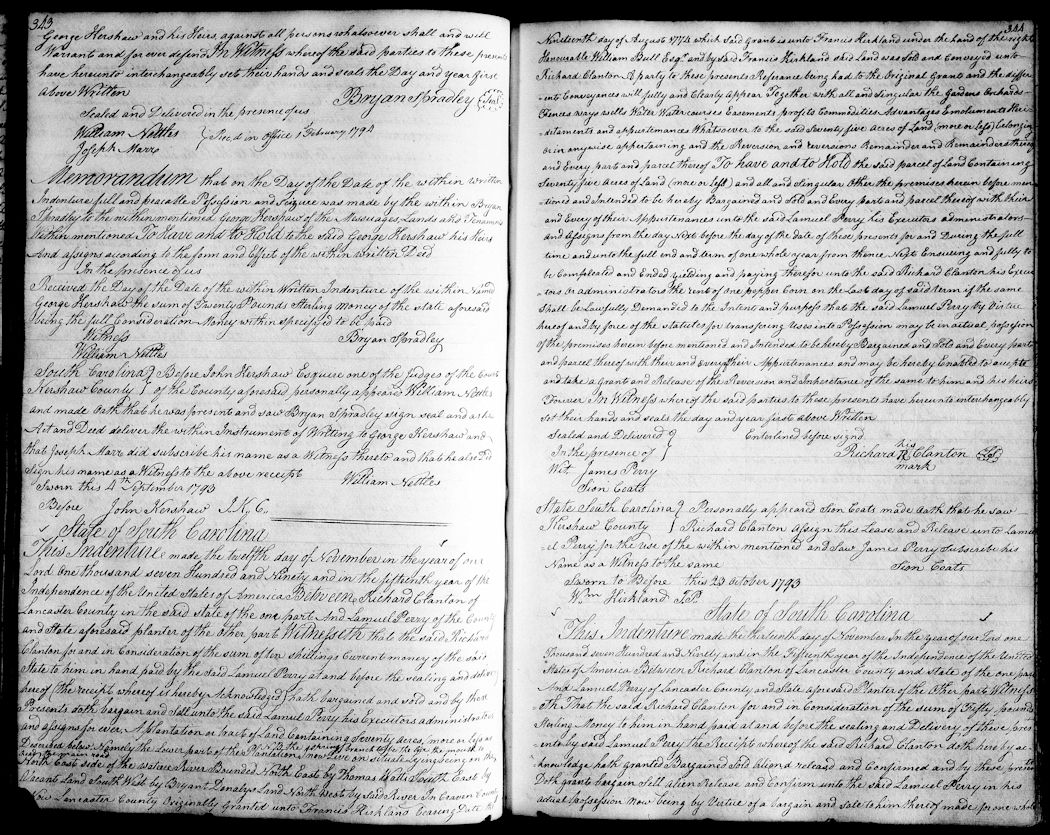 343
George Kershaw and his Heirs, against all persons whatsoever shall and will
Warrant and for ever defend In Witness whereof the said parties to these presents
have hereunto interchangeably set their hands and seals the Day and year first
above Written
Bryan Spradley Seal
Sealed and Delivered in the presence of us
William Nettles
Joseph Marro
Filed in office 1st February 1794
Memorandum that on the Day of the Date of the within written
Indenture full and peacable Possession and Seizure was made by the within Bryan
Spradley to the within mentioned George Kershaw of the Messuages, Lands and Tenements
Within mentioned To Have and to Hold to the said George Kershaw his Heirs
And assigns according to the form and Effect of the within written Deed
In the presence of us
Received the Day of the Date of the within Written Indenture of the within Named
George Kershaw the sum of Twenty Pounds Sterling money of the state aforesaid
being the full Consideration Money within specified to be paid
Witness
Bryan Spradley
William Nettles
South Carolina } Before John Kershaw Esquire one of the Judges of the Court
Kershaw County } of the County aforesaid personally appeared William Nettles
and made Oath that he was present and saw Bryan Spradley sign seal and as his
Act and Deed deliver the within Instrument of Writing to George Kershaw and
that Joseph Marro did subscribe his name as a Witness thereto and that he also Did
sign his name as a Witness to the above receipt
William Nettles
Sworn this 4th September 1793
Before John Kershaw J.K.C.
State of South Carolina
This Indenture made the twelfth day of November in the year of our
Lord One thousand seven Hundred and Ninety and in the fifteenth year of the
Independence of the United States of America Between Richard Clanton of
Lancaster County in the said state of the one part And Lamuel Perry of the County
and State aforesaid planter of the other part Witnesseth that the said Richard
Clanton for and in Consideration of the sum of ten shillings Current money of the said
State to him in hand paid by the said Lamuel Perry at and before the sealing and deliv
hereof the receipt whereof is hereby Acknowledged hath bargained and sold and by these
Presents doth bargain and sell unto the said Lamuel Perry his Executors administrators
and assigns for ever. A plantation or tract of Land Containing Seventy acres, more or less as
Described below. Namely the Lower part of the
North East side of the Wateree River Bounded North East by Thomas Watts South East by
Vacant Land South West by Bryant Land North West by said River In Craven County
Now Lancaster County Originally Granted unto Francis Kirkland bearing Date the
344
Nineteenth day of August 1774 which said Grant is unto Francis Kirkland under the hand of the right
Honourable William Bull Esqr. and by said Francis Kirkland said Land was Sold and Conveyed unto
Richard Clanton A party to these presents Referance being had to the Original Grant and the differ
-ent Conveyances will fully and Clearly appear Together with all and Singular the Gardens Orchards
Fences ways wells Water Watercourses Easements profits Commodities Advantages Emoluments Heri
ditaments and appurtenances Whatsoever to the said Seventy five acres of Land (more or Less) belonging
or in anywise appertaining and the Reversion and reversions Remainder and Remainders thereof
and Every part and parcel thereof To have and to Hold the said parcel of Land Containing
Seventy five acres of Land (more or Less) and all and Singular other the premises herein before men
tioned and Intended to be hereby Bargained and Sold and Every part and parcel thereof with their
and Every of their Appurtenances unto the said Lamuel Perry his Executors administrators
and Assigns from the day Next before the day of the date of these presents for and During the full
time and unto the full end and term of one whole year from thence Next Ensuing and fully to
be Compleated and Ended yielding and paying therefor unto the said Richard Clanton his Execu
tors or administrators the rent of one pepper Corn on the Last day of said term if the same
Shall be Lawfully Demanded to the Intent and purpose that the said Lamuel Perry by Virtue
hereof and by force of the statutes for transfering Uses into Possession may be in actual possession
of the premises herein before mentioned and Intended to be hereby Bargained and Sold and Every part
and parcel thereof with their and every their Appurtenances and may be hereby Enabled to accept
and take a grant and Release of the Reversion and Inheretance of the same to him and his heirs
Forever In Witness whereof the said parties to these presents have hereunto interchangeably
set their hands and seals the day and year first above Written
Sealed and Delivered } Enterlined before signd
In the presence of
Richard his R mark Clanton Seal
Wit. James Perry
Sion Coats
State South Carolina } Personally appeared Sion Coats made oath that he saw
Kershaw County } Richard Clanton assign this Lease and Release unto Lamu
el Perry for the Use of the within mentioned and Saw James Perry Subscribe his
Name as a Witness to the same
Sion Coats
Sworn to Before this 23 October 1793
Wm Kirkland J.P.
State of South Carolina
This Indenture made the thirteenth day of November In the year of our Lord one
Thousand seven Hundred and Ninety and in the Fifteenth year of the Independence of the United
States of America Between Richard Clanton of Lancaster County and State of the one part
And Lamuel Perry of Lancaster County and State aforesaid Planter of the Other part Witness
th That the said Richard Clanton for and in Consideration of the sum of Fifty pounds
Sterling Money to him in hand paid at and before the sealing and Delivery of these pres
ents by said Lamuel Perry the Receipt whereof the said Richard Clanton doth hereby ac
knowledge hath granted Bargained Sold aliend releasd and Confirmed and by these presents
Doth grant bargain Sell alien Release and Confirm unto the said Lamuel Perry in his
actual possession Now being by Virtue of a bargain and Sale to him thereof made for one whole